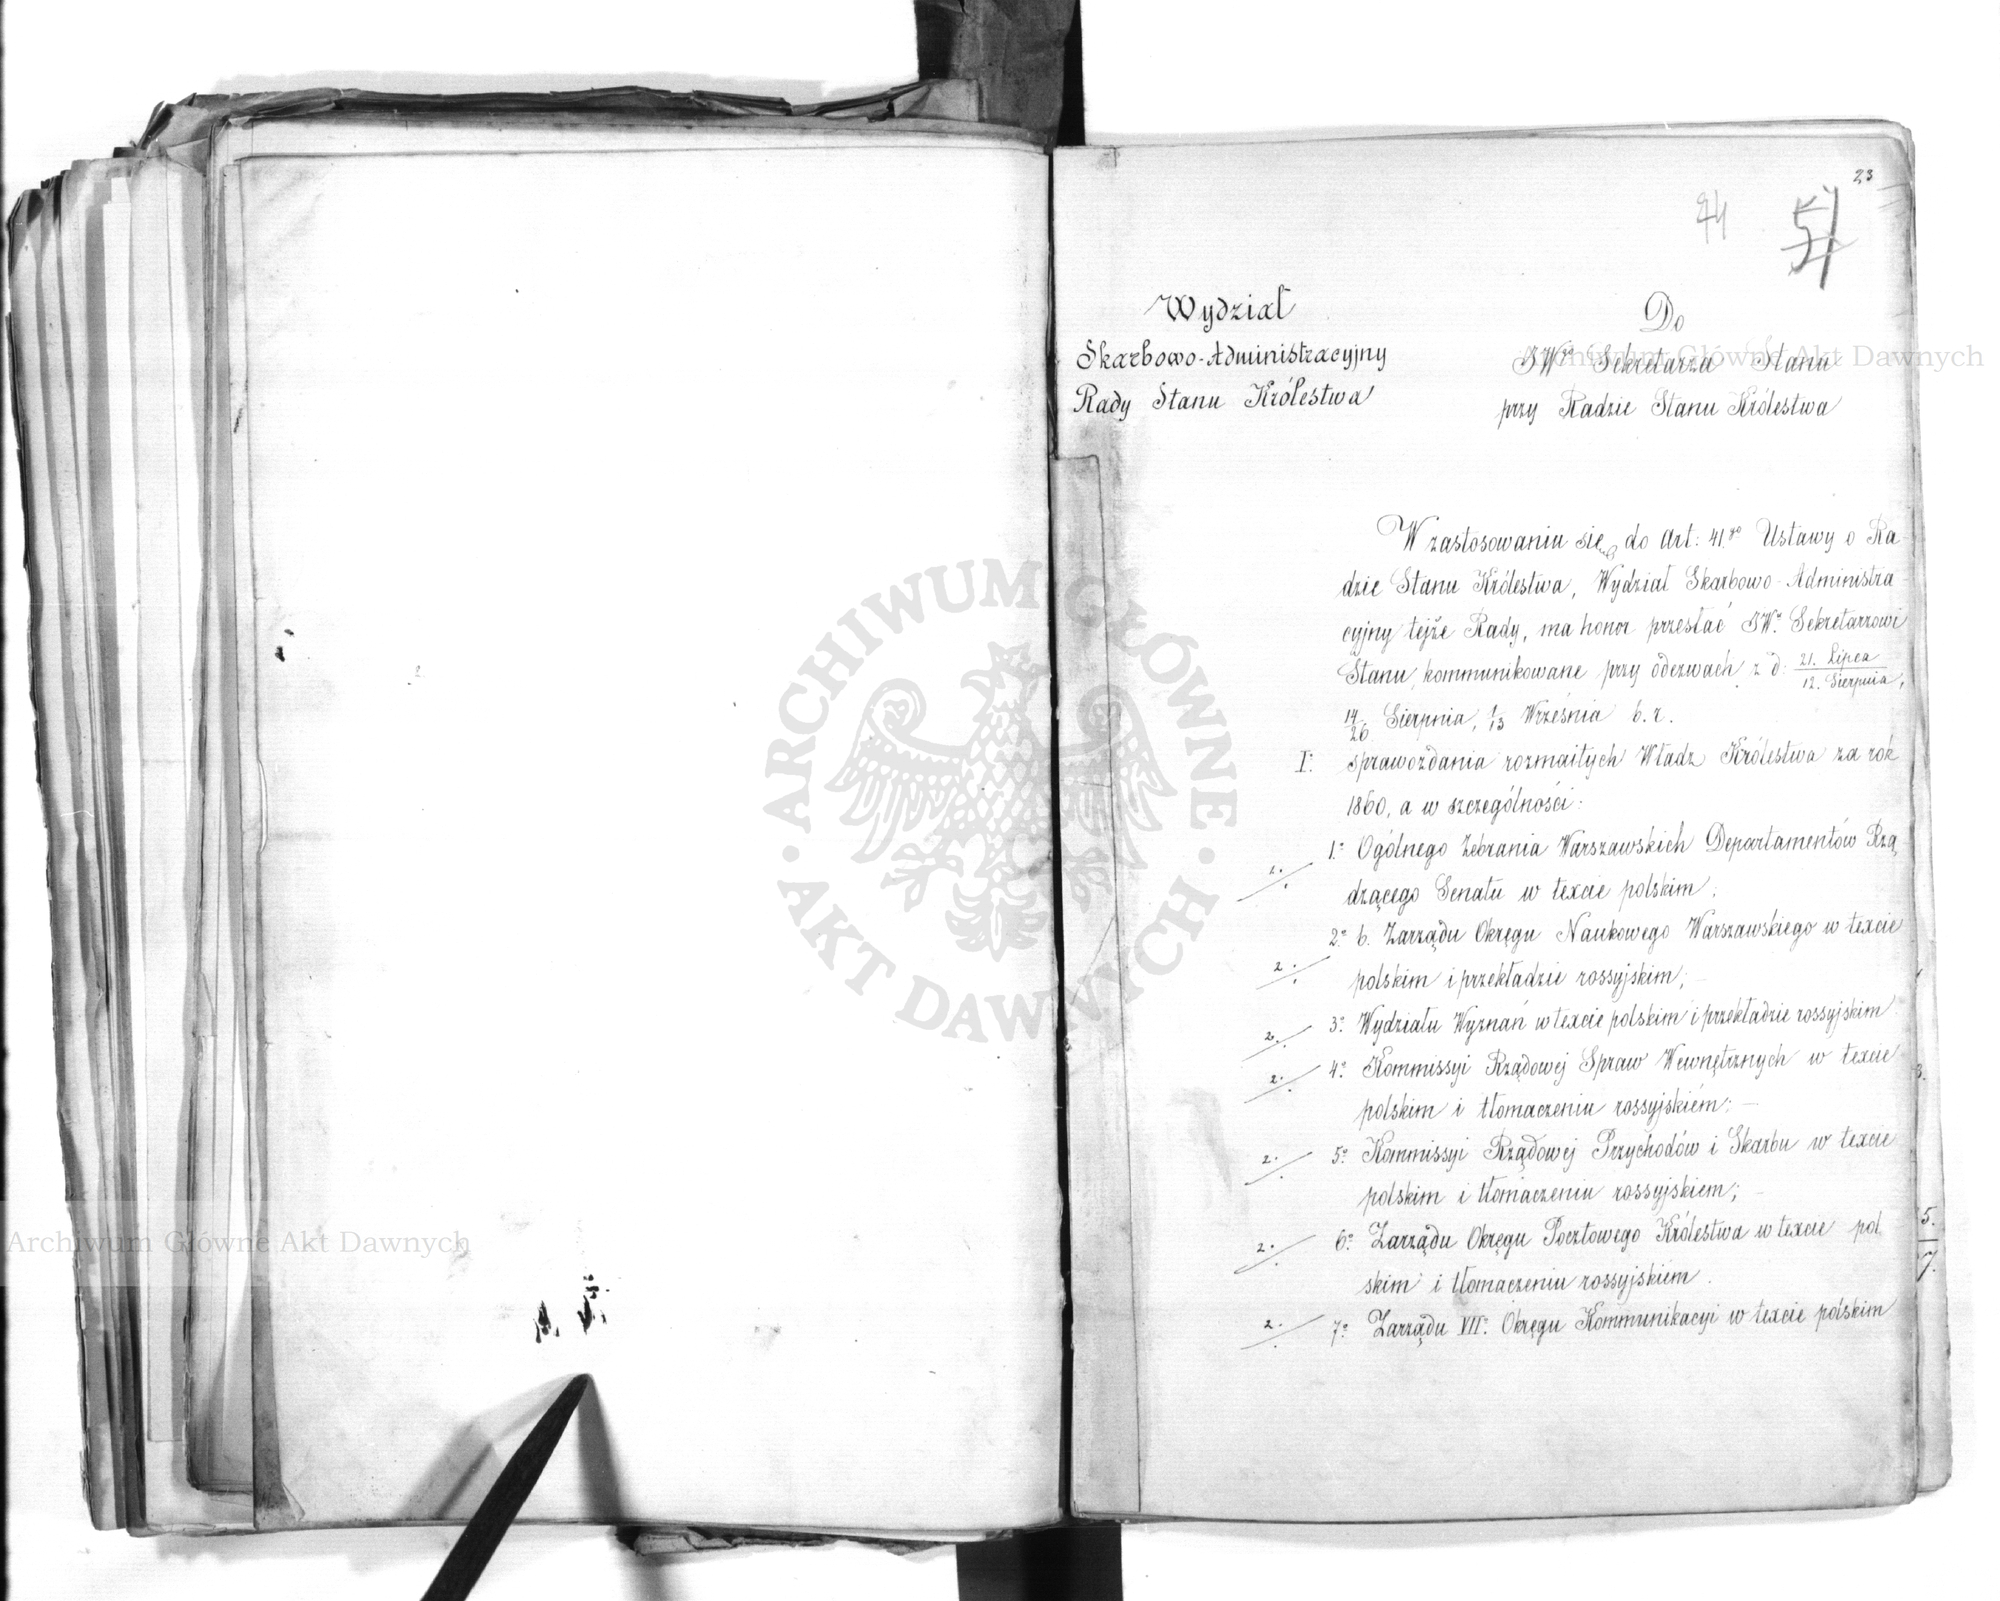 23
Wydział
Skarbowo-Administracyjny
Rady Stanu Królestwa
Do
JWgo Sekretarza Stanu
przy Radzie Stanu Królestwa
W zastosowaniu się do Art: 41go Ustawy o Ra-
dzie Stanu Królestwa, Wydział Skarbowo-Administra
cyjny tejże Rady, ma honor przesłać JWu Sekretarzowi
Stanu, kommunikowane przy odezwach z d: 21. Lipca / 12. Sierpnia,
14/26 Sierpnia, 1/13 Września b. r.
I: sprawozdania rozmaitych Władz Królestwa za rok
1860, a w szczególności:
2. 1o Ogólnego Zebrania Warszawskich Departamentów Rzą
dzącego Senatu w texcie polskim;
2. 2o b. Zarządu Okręgu Naukowego Warszawskiego w texcie
polskim i przekładzie rossyjskim; —
2. 3o Wydziału Wyznań w texcie polskim i przekładzie rossyjskim
2. 4o Kommissyi Rządowej Spraw Wewnętrznych w texcie
polskim i tłomaczeniu rossyjskiém; —
2. 5o Kommissyi Rządowej Przychodów i Skarbu w texcie
polskim i tłomaczeniu rossyjskiem; —
2. 6o Zarządu Okręgu Pocztowego Królestwa w texcie pol
skim i tłomaczeniu rossyjskiem.
2. 7o Zarządu VIIo Okręgu Kommunikacyi w texcie polskim
3.
5.
7.
Archiwum Główne Akt Dawnych
Archiwum Główne Akt Dawnych
ARCHIWUM GŁÓWNE AKT DAWNYCH